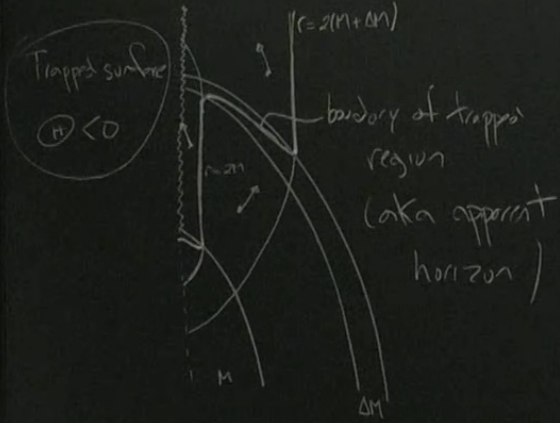 Trapped surface
Ⓗ < 0
r = 2(M + ΔM)
boundary of trapped
region
(aka apparent
horizon)
r = 2M
M
ΔM